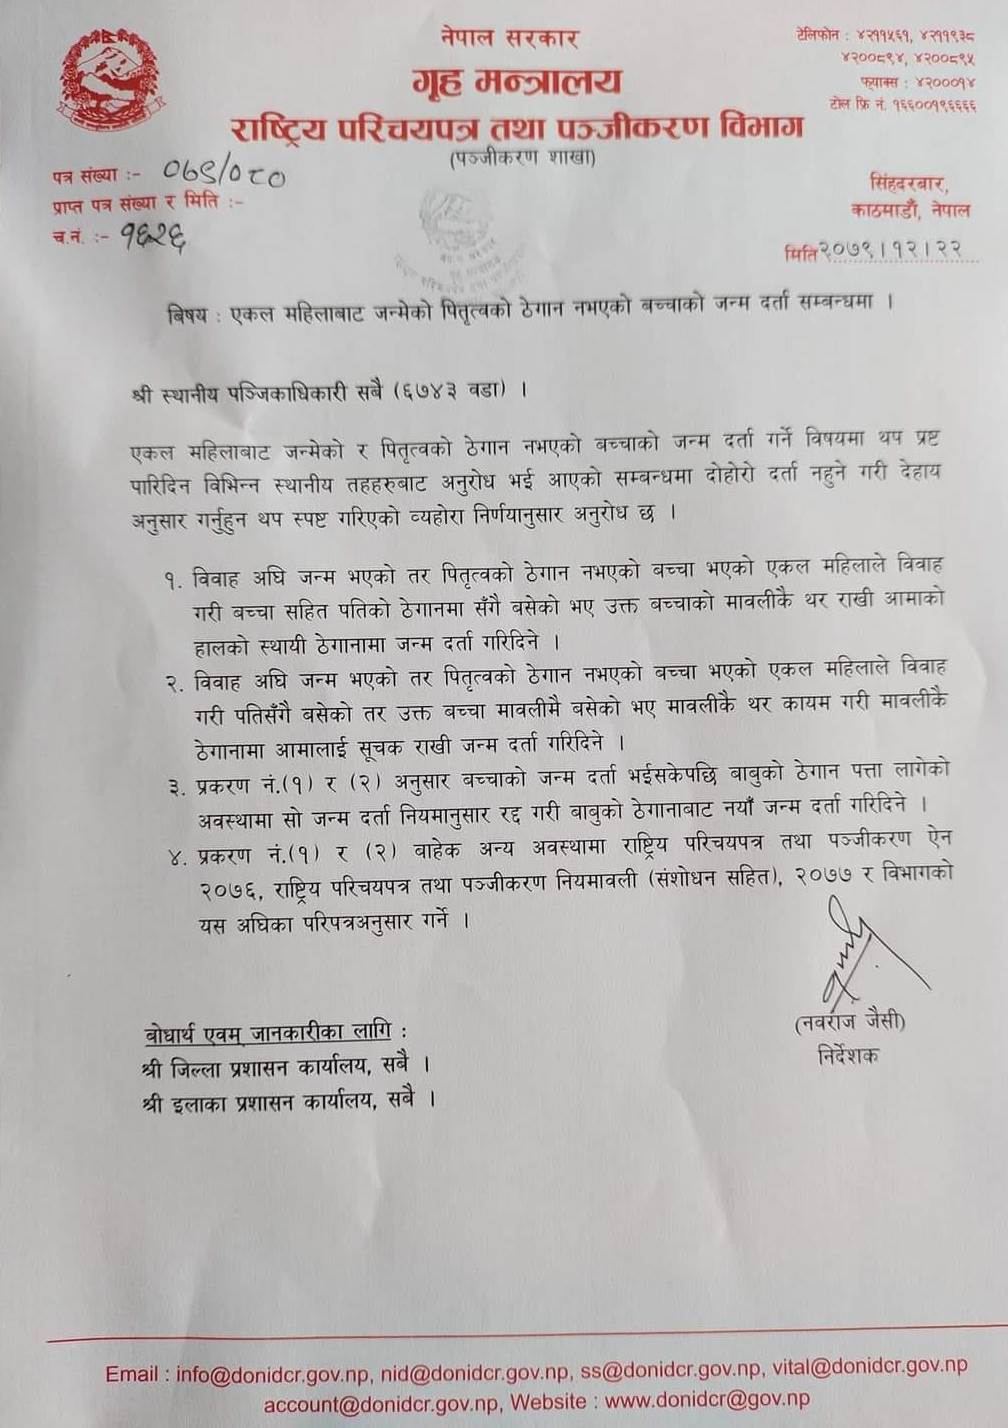 नेपाल सरकार
गृह मन्त्रालय
राष्ट्रिय परिचयपत्र तथा पञ्जीकरण विभाग
(पञ्जीकरण शाखा)
टेलिफोन : ४२११५६१, ४२११९३८
४२००८९४, ४२००८९५
फ्याक्स : ४२०००१४
टोल फ्रि नं. १६६००१९६६६६
पत्र संख्या :- ०७९/०८०
प्राप्त पत्र संख्या र मिति :-
च.नं. :- १६२६
सिंहदरबार,
काठमाडौं, नेपाल
मिति २०७९।१२।२२
बिषय : एकल महिलाबाट जन्मेको पितृत्वको ठेगान नभएको बच्चाको जन्म दर्ता सम्बन्धमा ।
श्री स्थानीय पञ्जिकाधिकारी सबै (६७४३ वडा) ।
एकल महिलाबाट जन्मेको र पितृत्वको ठेगान नभएको बच्चाको जन्म दर्ता गर्ने विषयमा थप प्रष्ट
पारिदिन विभिन्न स्थानीय तहहरुबाट अनुरोध भई आएको सम्बन्धमा दोहोरो दर्ता नहुने गरी देहाय
अनुसार गर्नुहुन थप स्पष्ट गरिएको व्यहोरा निर्णयानुसार अनुरोध छ ।
१. विवाह अघि जन्म भएको तर पितृत्वको ठेगान नभएको बच्चा भएको एकल महिलाले विवाह
गरी बच्चा सहित पतिको ठेगानमा सँगै बसेको भए उक्त बच्चाको मावलीकै थर राखी आमाको
हालको स्थायी ठेगानामा जन्म दर्ता गरिदिने ।
२. विवाह अघि जन्म भएको तर पितृत्वको ठेगान नभएको बच्चा भएको एकल महिलाले विवाह
गरी पतिसँगै बसेको तर उक्त बच्चा मावलीमै बसेको भए मावलीकै थर कायम गरी मावलीकै
ठेगानामा आमालाई सूचक राखी जन्म दर्ता गरिदिने ।
३. प्रकरण नं.(१) र (२) अनुसार बच्चाको जन्म दर्ता भईसकेपछि बाबुको ठेगान पत्ता लागेको
अवस्थामा सो जन्म दर्ता नियमानुसार रद्द गरी बाबुको ठेगानाबाट नयाँ जन्म दर्ता गरिदिने ।
४. प्रकरण नं.(१) र (२) बाहेक अन्य अवस्थामा राष्ट्रिय परिचयपत्र तथा पञ्जीकरण ऐन
२०७६, राष्ट्रिय परिचयपत्र तथा पञ्जीकरण नियमावली (संशोधन सहित), २०७७ र विभागको
यस अघिका परिपत्रअनुसार गर्ने ।
(नवराज जैसी)
निर्देशक
बोधार्थ एवम् जानकारीका लागि :
श्री जिल्ला प्रशासन कार्यालय, सबै ।
श्री इलाका प्रशासन कार्यालय, सबै ।
Email : info@donidcr.gov.np, nid@donidcr.gov.np, ss@donidcr.gov.np, vital@donidcr.gov.np
account@donidcr.gov.np, Website : www.donidcr@gov.np